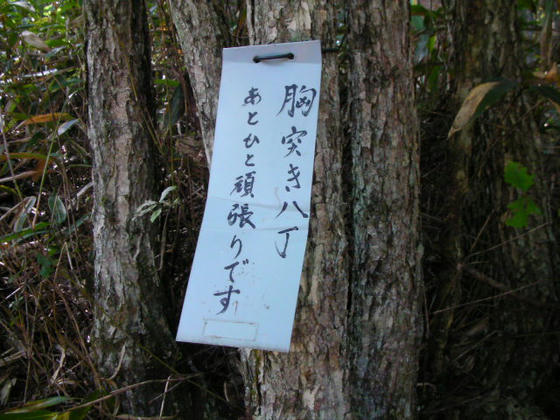 胸突き八丁
あとひと頑張りです